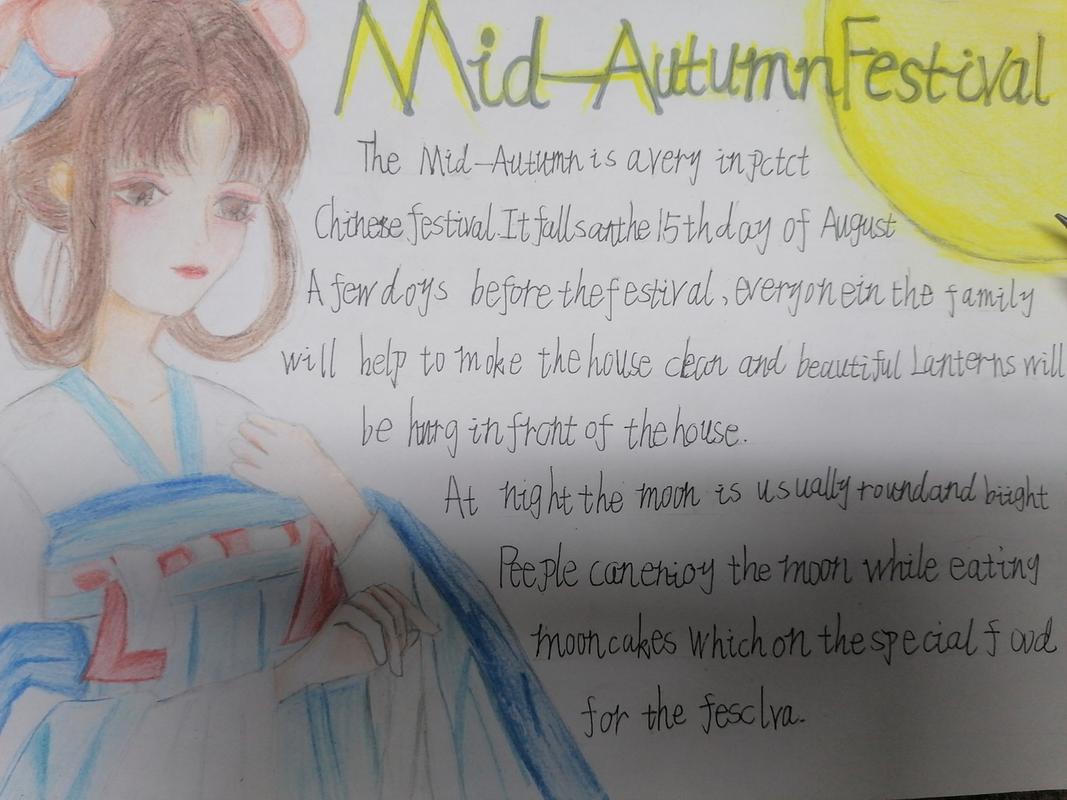 Mid-Autumn Festival
The Mid-Autumn is a very inpctct
Chinese festival. It falls anthe 15th day of August
A few doys before the festival, everyone in the family
will help to moke the house clean and beautiful Lanterns will
be hung in front of the house.
At night the moon is usually round and biight
Peeple can enioy the moon while eating
mooncakes which on the special food
for the fesclva.